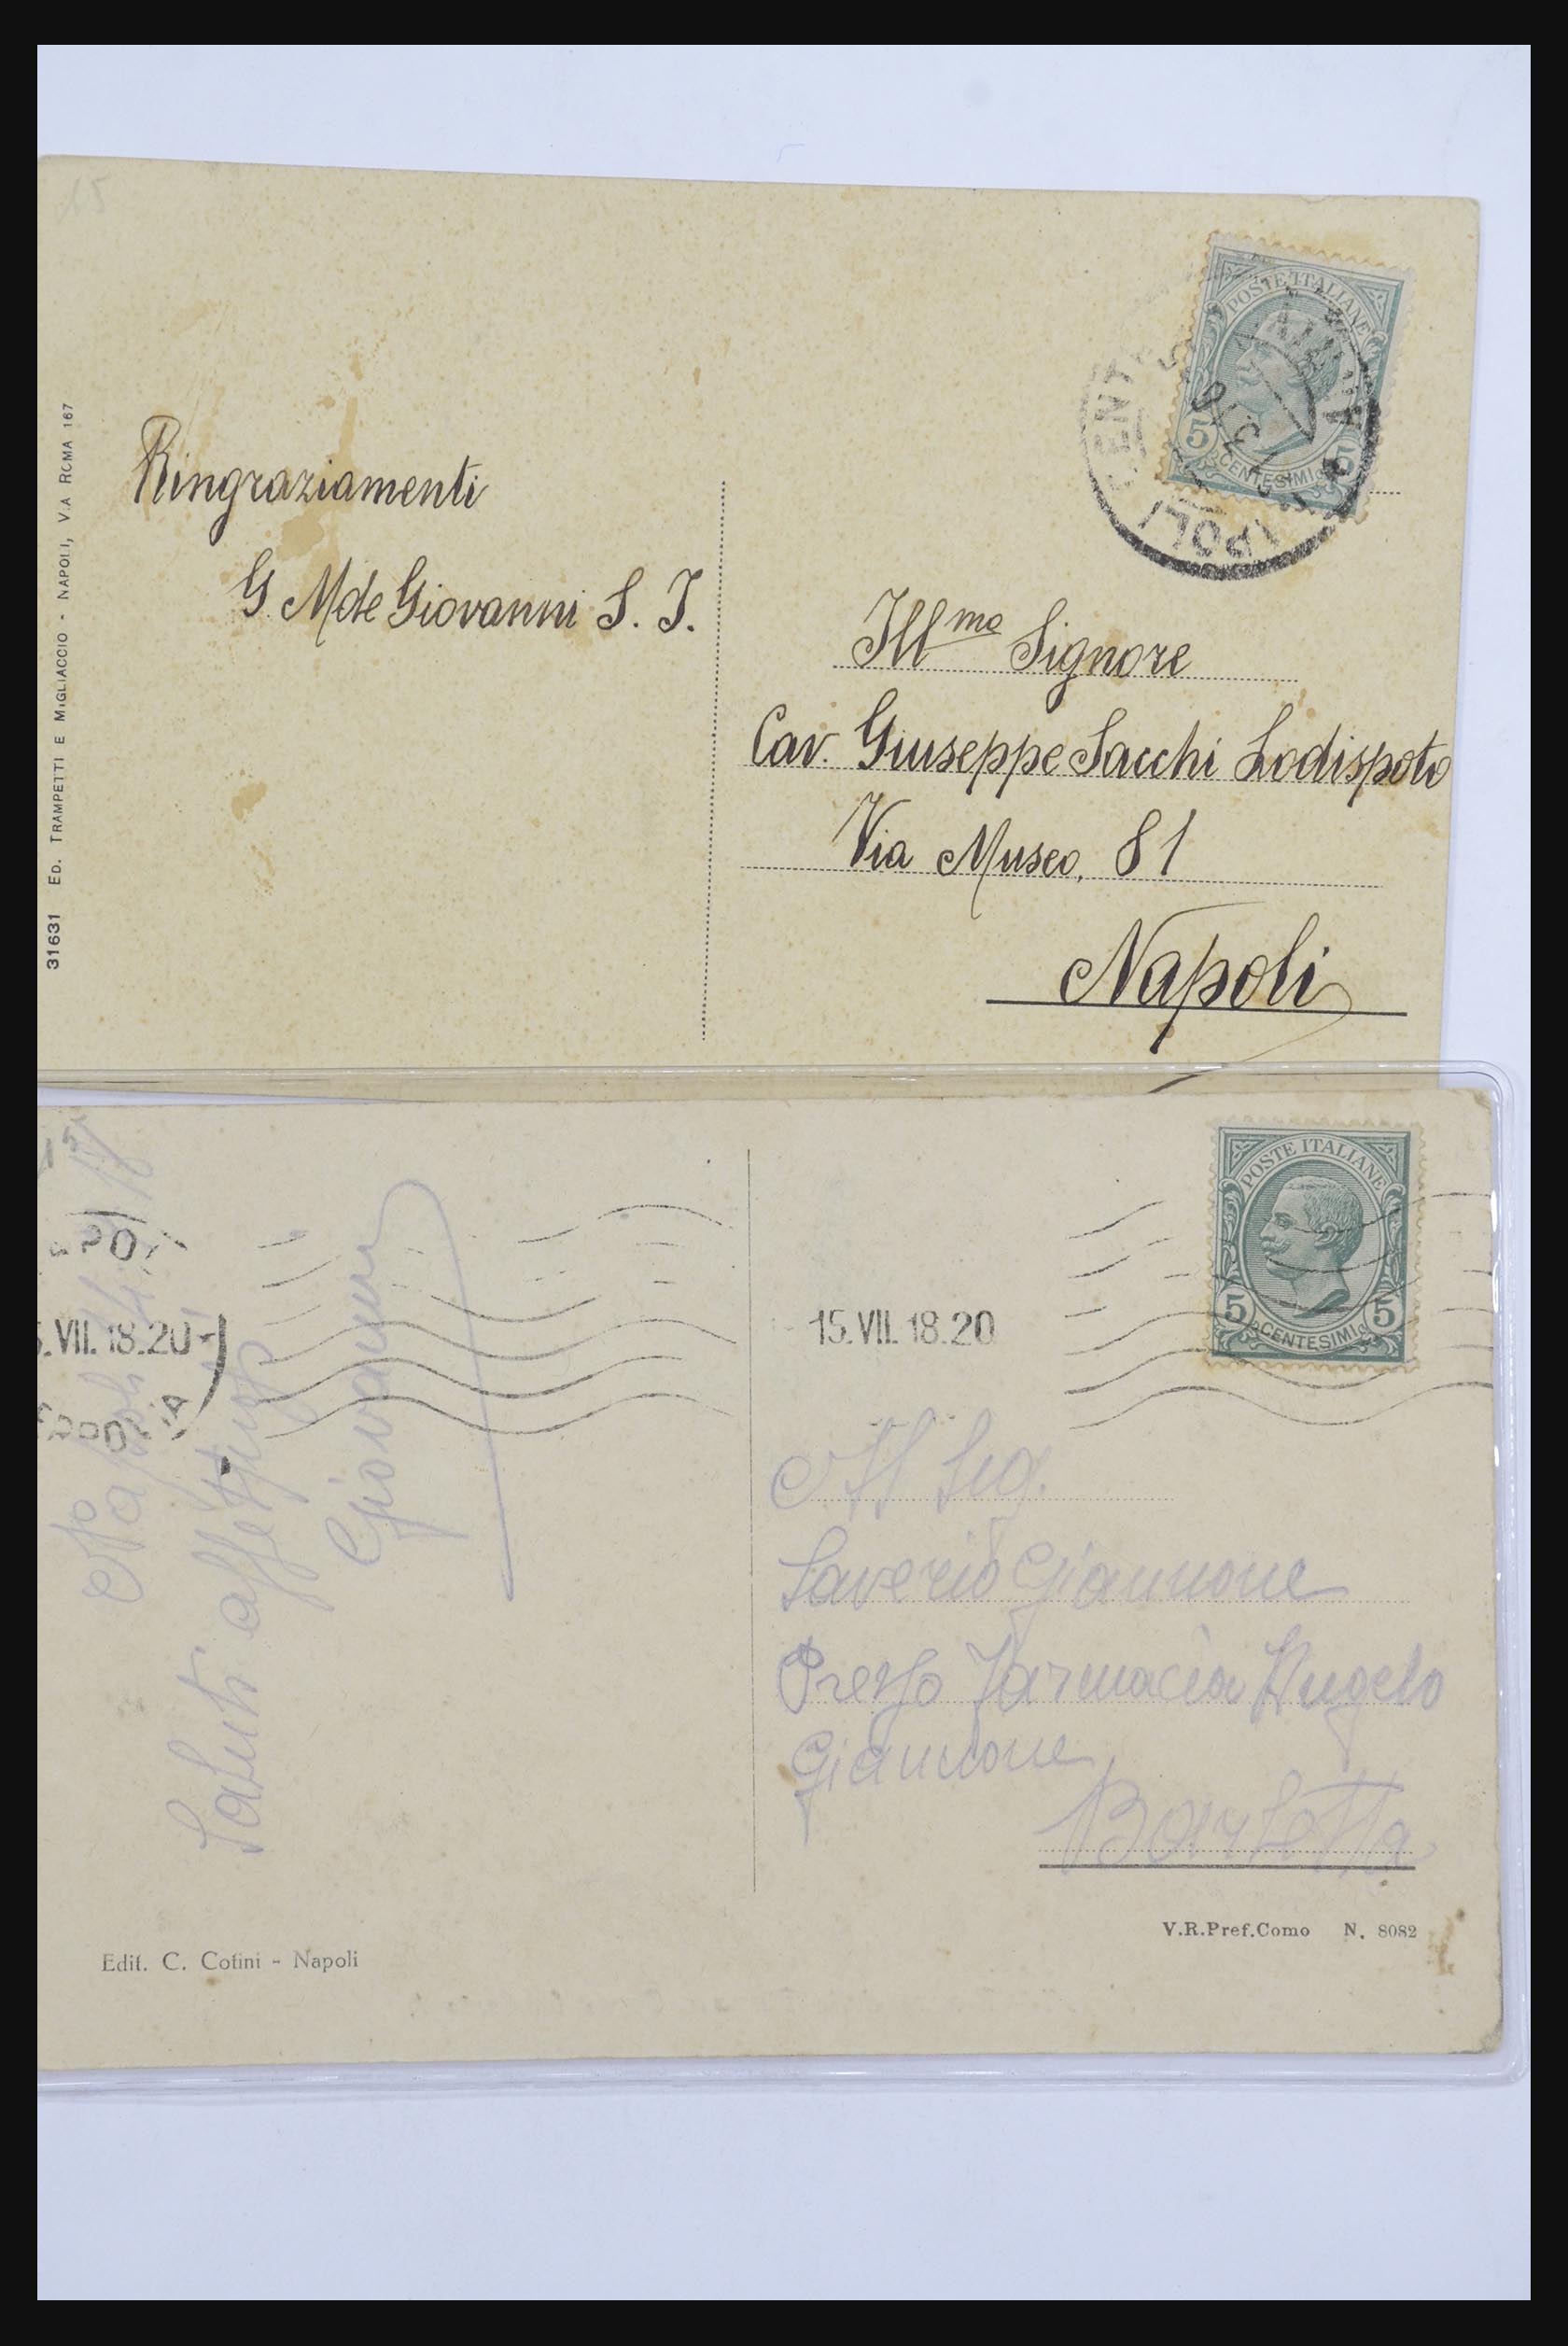 15
POSTE ITALIANE
5 5
CENTESIMI
31631 ED. TRAMPETTI E MIGLIACCIO - NAPOLI, VIA ROMA 167
Ringraziamenti
G. M de Giovanni S. J.
Ill^mo Signore
Cav. Giuseppe Sacchi Lodispoto
Via Museo, 81
Napoli
15
POSTE ITALIANE
5 5
CENTESIMI
.VII. 18.20
15.VII. 18.20
Napoli
Saluti affettuosi
Giovanni
Al Sig.
Saverio Giannone
Presso Farmacia Angelo
Giannone
Barletta
Edit. C. Cotini - Napoli
V.R.Pref.Como N. 8082